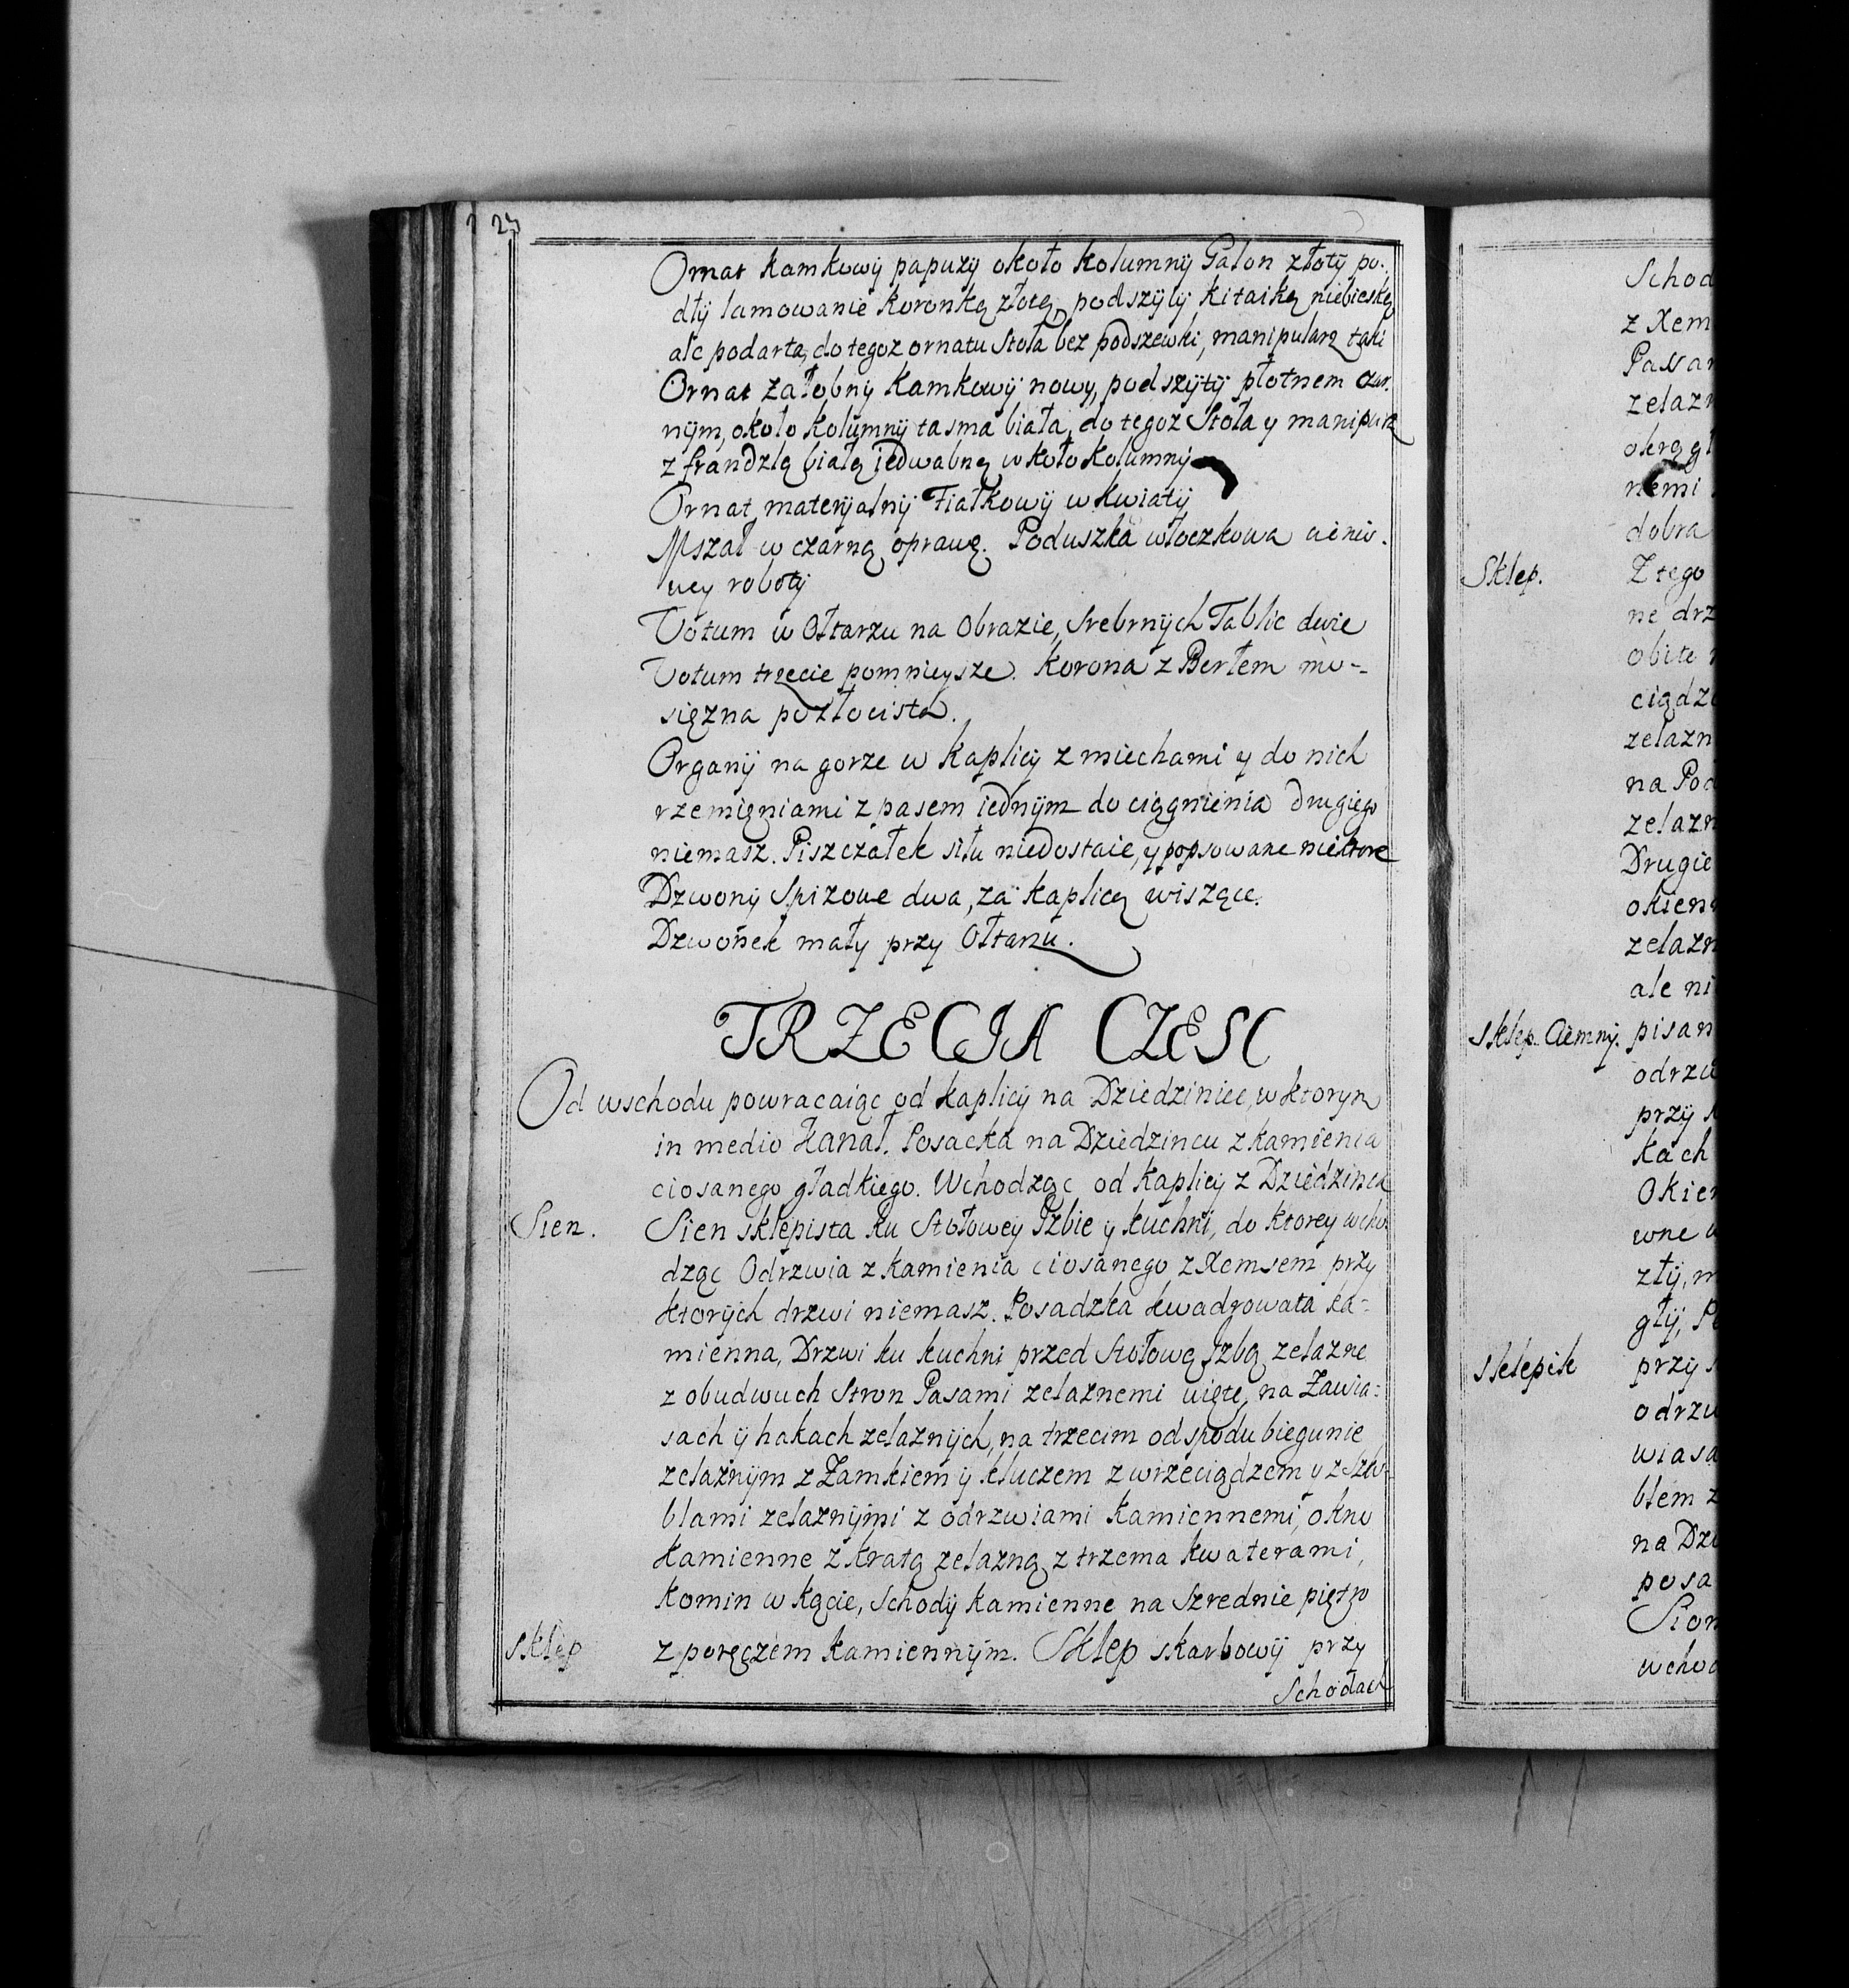 27
Ornat kamkowy papuzy około kolumny Galon złoty po-
dły lamowanie koronką złotą, podszyty kitaiką niebieską
ale podartą, do tegoz ornatu Stoła bez podszewki, manipularz taki
Ornat załobny kamkowy nowy, podszyty płotnem czar-
nym, około kolumny tasma biała, do tegoz Stoła y manipularz
z frandzlą białą jedwabną w koło kolumny
Ornat materyalny Fiałkowy w kwiaty
Mszał w czarną oprawę. Poduszka włoczkowa
wey roboty
Votum w Ołtarzu na Obrazie, Srebrnych Tablic dwie
Votum trzecie pomnieysze. Korona z Berłem mo-
siężna pozłocista.
Organy na gorze w kaplicy z miechami y do nich
rzemięniami z pasem iednym do ciągnienia drugiego
niemasz. Piszczałek siłu niedostaie, y popsowane niektore
Dzwony Spizowe dwa, za kaplicą wiszące.
Dzwonek mały przy Ołtarzu.
TRZECIA CZESC
Od wschodu powracaiąc od kaplicy na Dziedziniec, w ktorym
in medio Kanał. Posacka na Dziedzincu z kamienia
ciosanego gładkiego. Wchodząc od kaplicy z Dziedzinca
Sien. Sien sklepista ku Stołowey Izbie y kuchni, do ktorey wcho
dząc Odrzwia z kamienia ciosanego z Xemsem przy
ktorych drzwi niemasz. Posadzka kwadrowata ka-
mienna, Drzwi ku kuchni przed Stołową Izbą zelazne
z obudwuch Stron Pasami zelaznemi uięte, na Zawia-
sach y hakach zelaznych, na trzecim odspodu biegunie
zelaznym z Zamkiem y kluczem z wrzeciądzem y z szko-
blami zelaznymi z odrzwiami kamiennemi, okno
kamienne z kratą zelazną z trzema kwaterami,
komin w kącie, Schody kamienne na Szrednie piętro
Sklep z poręczem kamiennym. Sklep skarbowy przy
Schodach
Schod
z Xem
Passa
zelazn
okrągł
nemi
dobra
Sklep. Z tego
ne drz
obite
ciądz
zelazn
na Po
zelazn
Drugie
okien
zelazn
ale ni
Sklep Ciemny. pisan
odrzw
przy
kach
Okien
wne
zły, m
gły, P
Sklepik przy
odrzw
wiasa
blem z
na Dz
posa
Sion
wcho